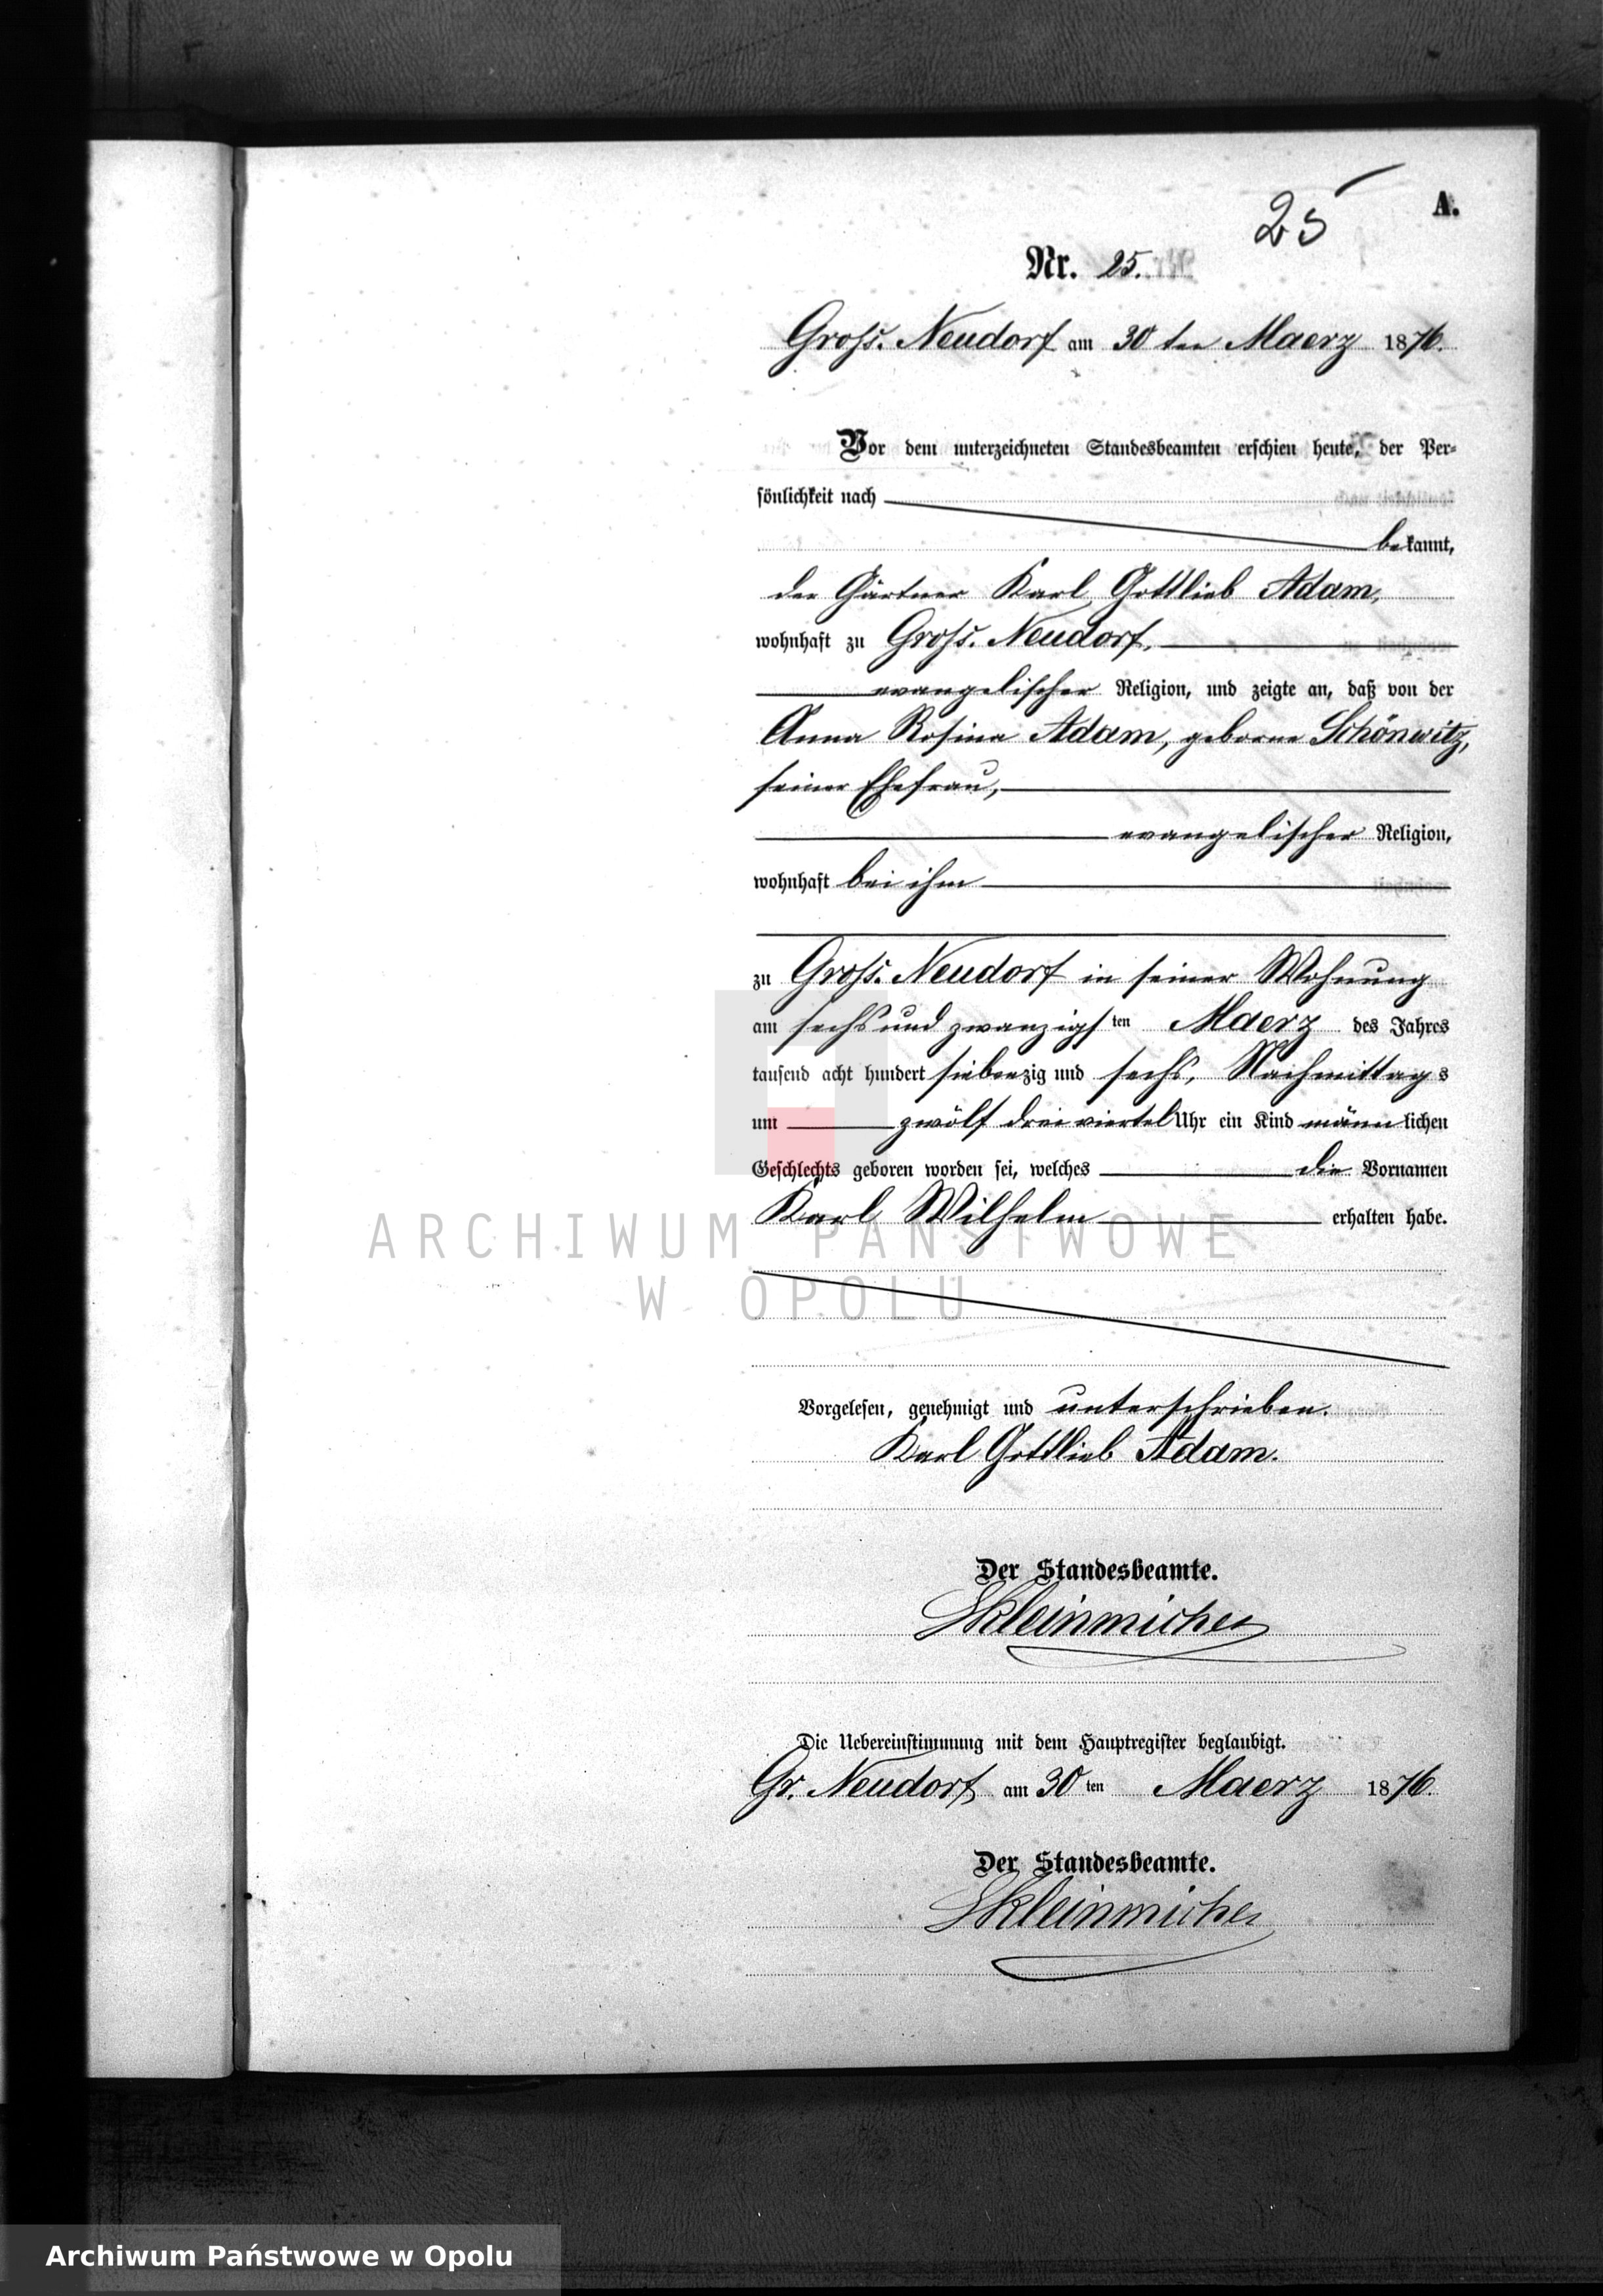 25
A.
Nr. 25.
Gross. Neudorf am 30 ten Maerz 1876.
Vor dem unterzeichneten Standesbeamten erschien heute, der Per-
sönlichkeit nach
bekannt,
der Gärtner Karl Gottlieb Adam,
wohnhaft zu Gross. Neudorf,
evangelischer Religion, und zeigte an, daß von der
Anna Rosina Adam, geborne Schönwitz,
seiner Ehefrau,
evangelischer Religion,
wohnhaft bei ihm
zu Gross. Neudorf in seiner Wohnung
am sechs und zwanzigsten Maerz des Jahres
tausend acht hundert siebenzig und sechs, Nachmittags
um zwölf dreiviertel Uhr ein Kind männlichen
Geschlechts geboren worden sei, welches die Vornamen
Karl Wilhelm erhalten habe.
ARCHIWUM PAŃSTWOWE
W OPOLU
Vorgelesen, genehmigt und unterschrieben.
Karl Gottlieb Adam.
Der Standesbeamte.
Die Uebereinstimmung mit dem Hauptregister beglaubigt.
Gr. Neudorf, am 30 ten Maerz 1876.
Der Standesbeamte.
Archiwum Państwowe w Opolu